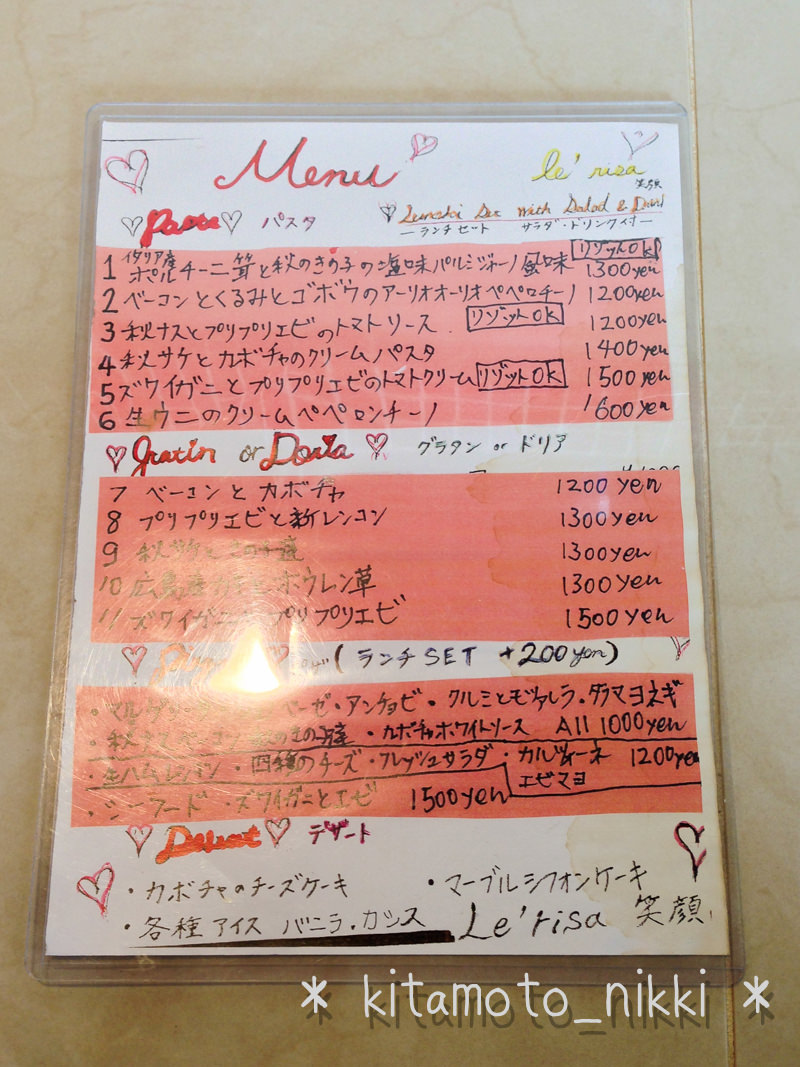 Menu
le' risa
笑顔
Pasta パスタ
Lunchi Set With Salad &
ーランチセット サラダ・ドリンク付ー
リゾットOK
1 イタリア産ポルチーニ茸と秋のきの子の塩味パルミジャーノ風味 1300yen
2 ベーコンとくるみとゴボウのアーリオオーリオペペロチーノ 1200yen
3 秋ナスとプリプリエビのトマトソース リゾットOK 1200yen
4 秋サケとカボチャのクリームパスタ 1400yen
5 ズワイガニとプリプリエビのトマトクリーム リゾットOK 1500yen
6 生ウニのクリームペペロンチーノ 1600yen
Gratin or Doria グラタン or ドリア
7 ベーコンとカボチャ 1200yen
8 プリプリエビと新レンコン 1300yen
9 秋サケときの子 1300yen
10 広島産カキとホウレン草 1300yen
11 ズワイガニとプリプリエビ 1500yen
(ランチSET +200yen)
・アンチョビ・クルミとモツァレラ・タラマヨネギ
・秋ナスベーコン ・カボチャホワイトソース All 1000yen
・生ハム ・四種のチーズ・フレッシュサラダ・カルツォーネ 1200yen
エビマヨ
・シーフード・ズワイガニとエビ 1500yen
Dessert デザート
・カボチャのチーズケーキ ・マーブルシフォンケーキ
・各種アイス バニラ・カシス Le'risa 笑顔
* kitamoto_nikki *